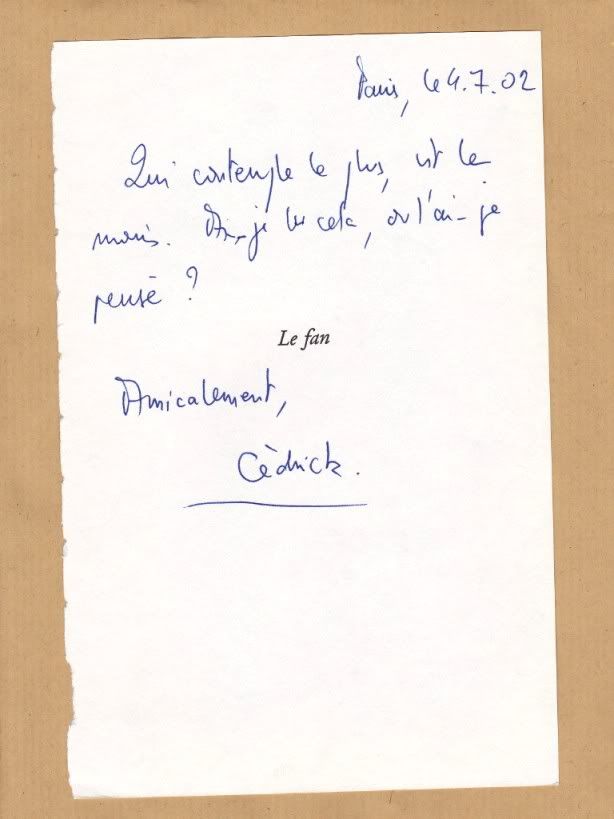 Paris, le 4.7.02
Qui contemple le plus, vit le
moins. Ai-je lu cela, ou l'ai-je
pensé ?
Le fan
Amicalement,
Cèdrick.